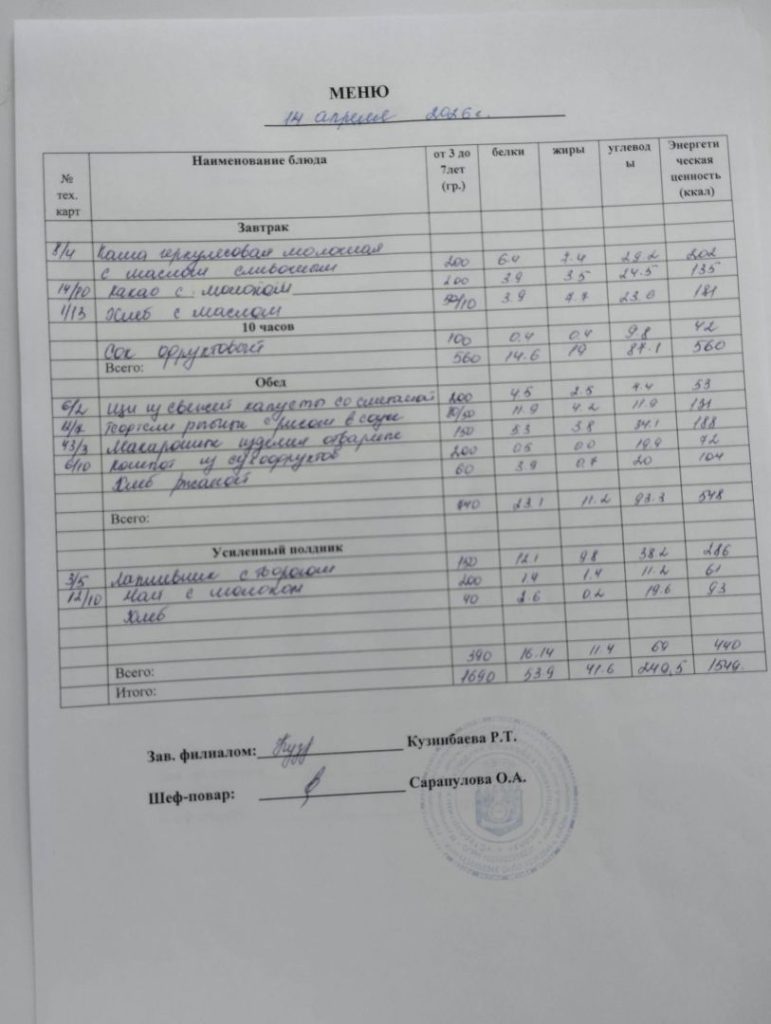 МЕНЮ
14 апреля 2026 г.
№ тех. карт Наименование блюда от 3 до 7лет (гр.) белки жиры углеводы Энергетическая ценность (ккал)
Завтрак
8/4 Каша геркулесовая молочная
с маслом сливочным 200 6.4 7.4 29.2 202
14/10 Какао с молоком 200 3.9 3.5 24.5 135
1/13 Хлеб с маслом /10 3.9 7.7 23.6 181
10 часов
Сок фруктовый 100 0.4 0.4 9.8 42
Всего: 560 14.6 19 87.1 560
Обед
6/2 Щи из свежей капусты со сметаной 200 4.5 2.5 7.4 53
12/7 Тефтели рыбные с рисом в соусе 11.9 4.2 11.9 131
43/3 Макаронные изделия отварные 150 5.3 3.8 34.1 188
6/10 Компот из сухофруктов 200 0.5 0.0 19.9 72
Хлеб ржаной 60 3.9 0.7 20 104
Всего: 740 23.1 11.2 93.3 548
Усиленный полдник
3/5 Лапшевник с творогом 150 12.1 9.8 38.2 286
12/10 Чай с молоком 200 1.4 1.4 11.2 61
Хлеб 40 2.6 0.2 19.6 93
Всего: 390 16.14 11.4 69 440
Итого: 1690 53.9 41.6 249,5 1549.
Зав. филиалом: Кузинбаева Р.Т.
Шеф-повар: Сарапулова О.А.